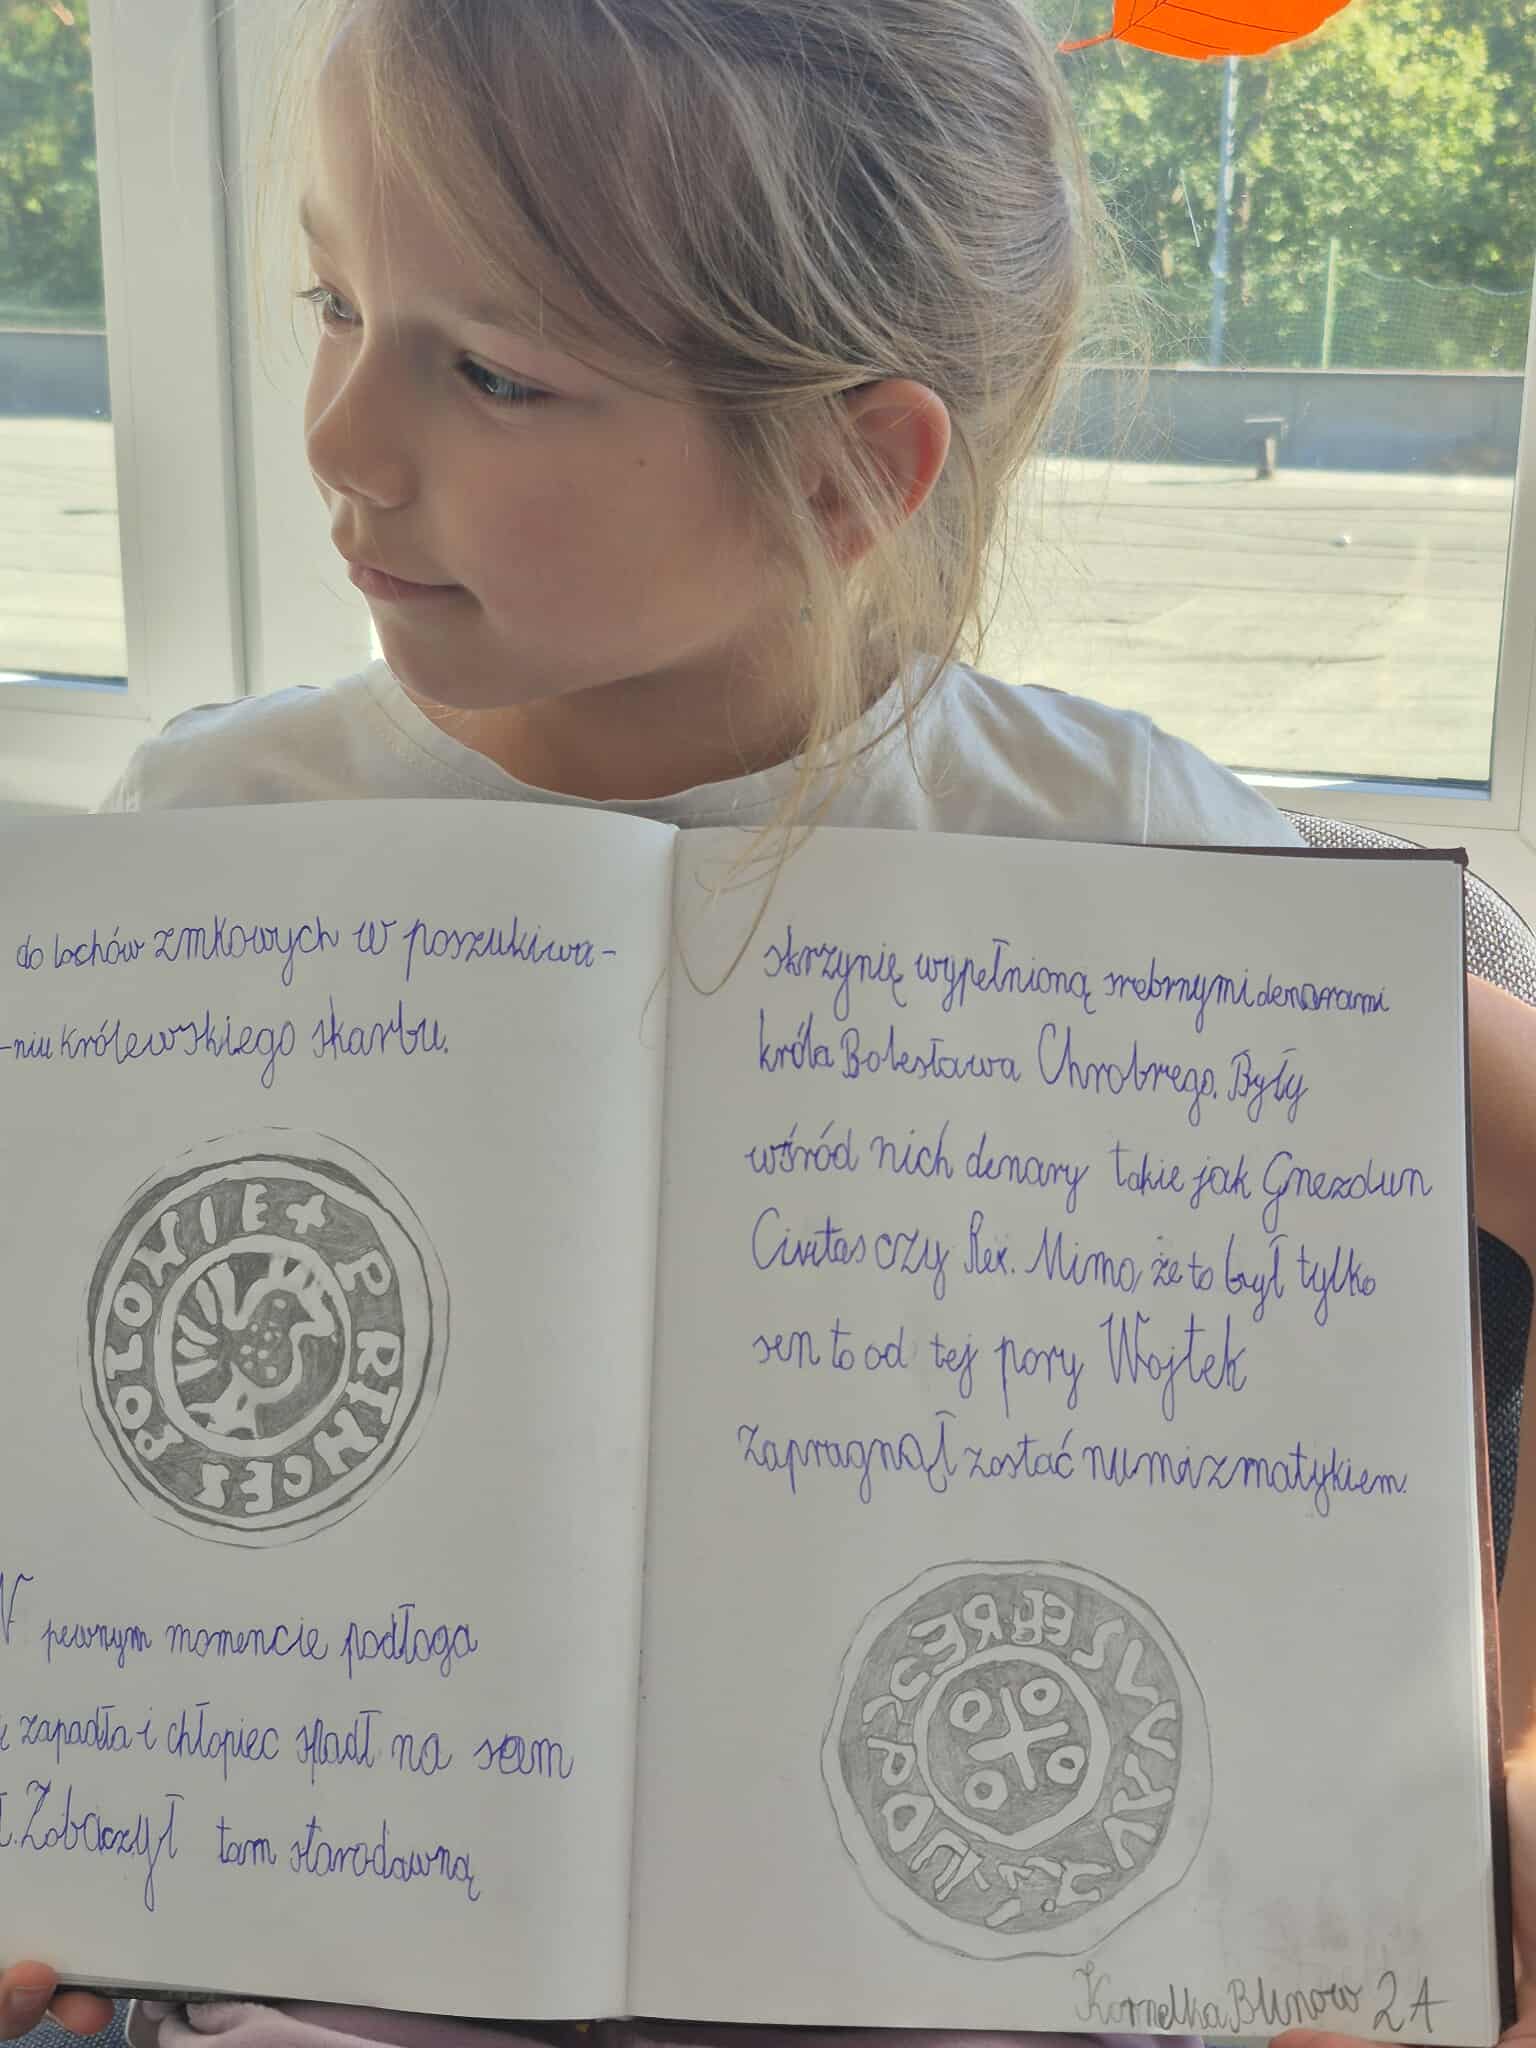 do lochów zmkowych w poszukiwa-
-niu królewskiego skarbu.
POLONIE + PRINCES
pewnym momencie podłoga
zapadła i chłopiec spadł na sam
Zobaczył tam starodawną
skrzynię wypełnioną srebrnymi denarami
króla Bolesława Chrobrego. Były
wśród nich denary takie jak Gnezdun
Civitas czy Rex. Mimo, że to był tylko
sen to od tej pory Wojtek
zapragnął zostać numizmatykiem.
Kornelka Blunow 2A